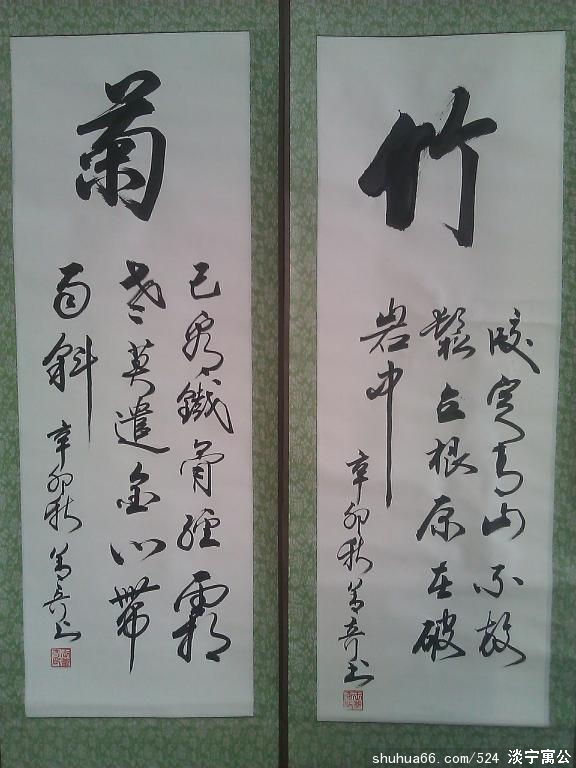 竹
咬定青山不放
鬆立根原在破
岩中
辛卯秋 书
菊
已看鐵骨經霜
老莫遣金心帶
雨斜
辛卯秋 书
shuhua66.com/524 淡宁寓公